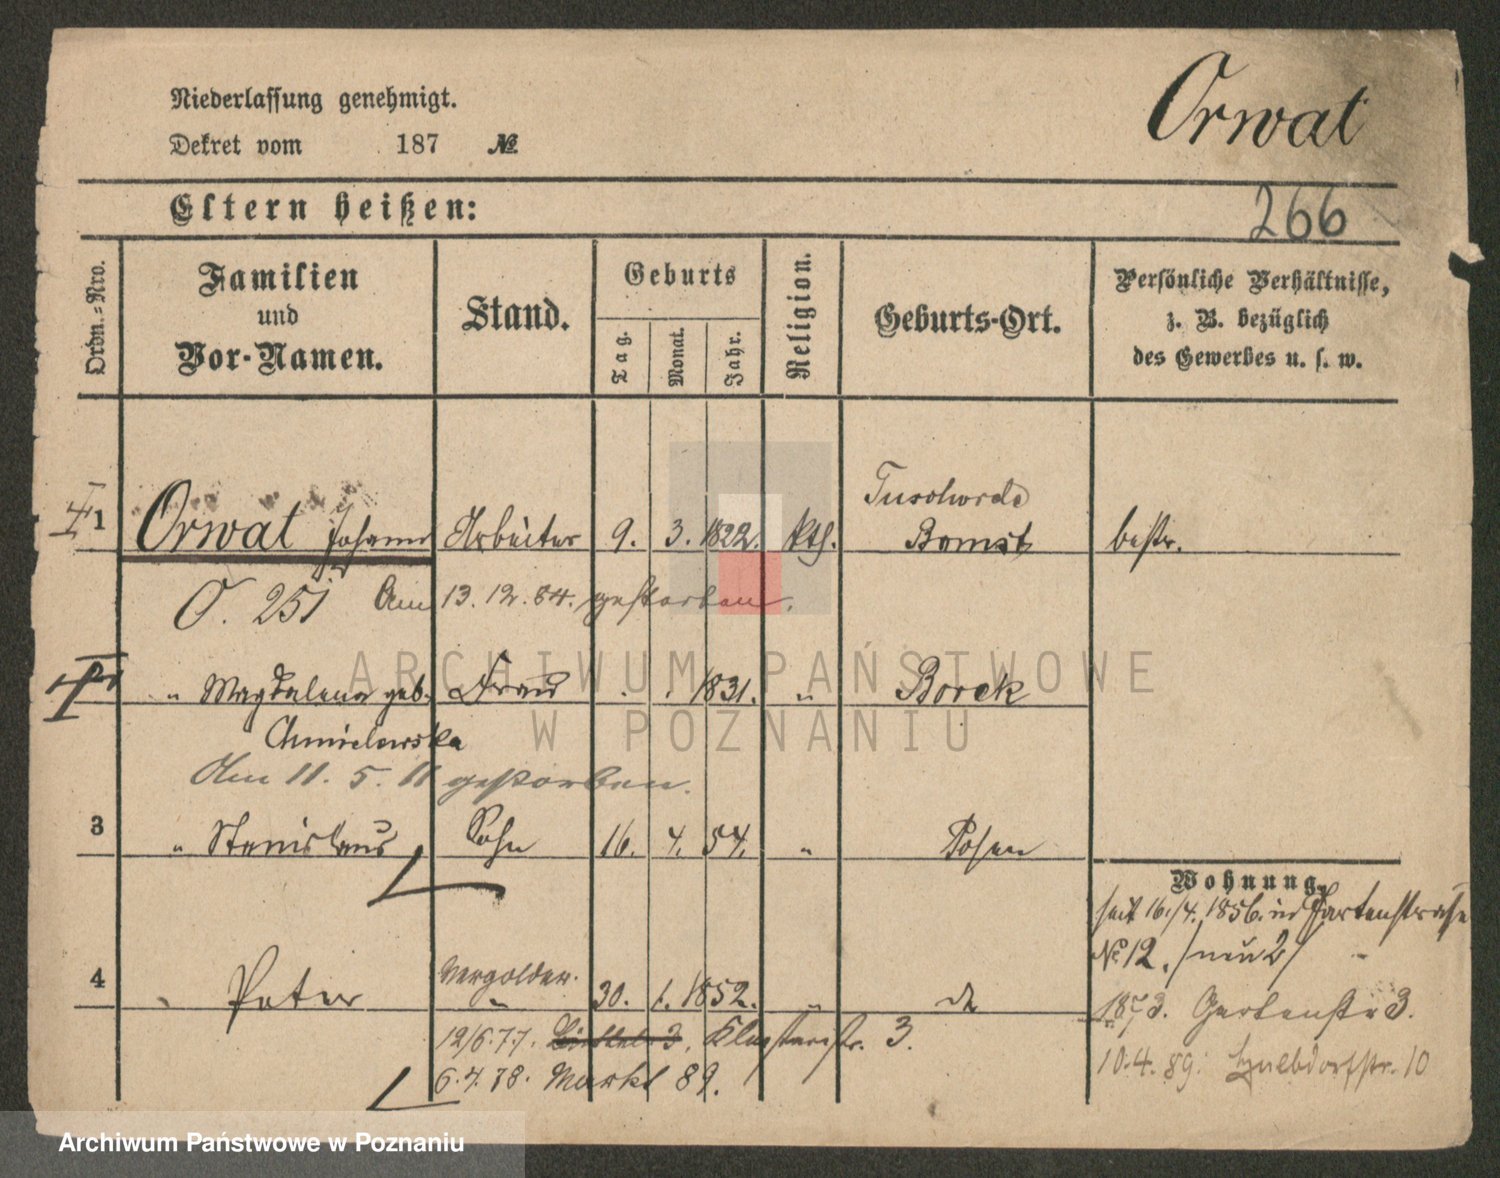 Orwat
Niederlassung genehmigt.
Dekret vom 187 №
Eltern heißen:
266
Ordn.-Nro.
Familien
und
Vor-Namen.
Stand.
Geburts
Tag.
Monat.
Jahr.
Religion.
Geburts-Ort.
Persönliche Verhältnisse,
z. B. bezüglich
des Gewerbes u. s. w.
1 Orwat Johann Arbeiter 9. 3. 1822. kth. Bomst bestr.
O. 251 Am 13. 12. 84. gestorben.
" Magdalena geb. Frau 1831. " Borek
Chmielewska
Am 11. 5. 11 gestorben.
3 " Stanislaus Sohn 16. 4. 54. " Posen
Wohnung.
seit 16./4. 1856. in Gartenstraße
№ 12. /neu 2/
4 " Peter Vergolder. " 30. 1. 1852. " do
1873. Gartenstr 3.
12/6.77. Klosterstr. 3.
10.4.89:
6.4.78. Markt 89.
ARCHIWUM PAŃSTWOWE
W POZNANIU
Archiwum Państwowe w Poznaniu